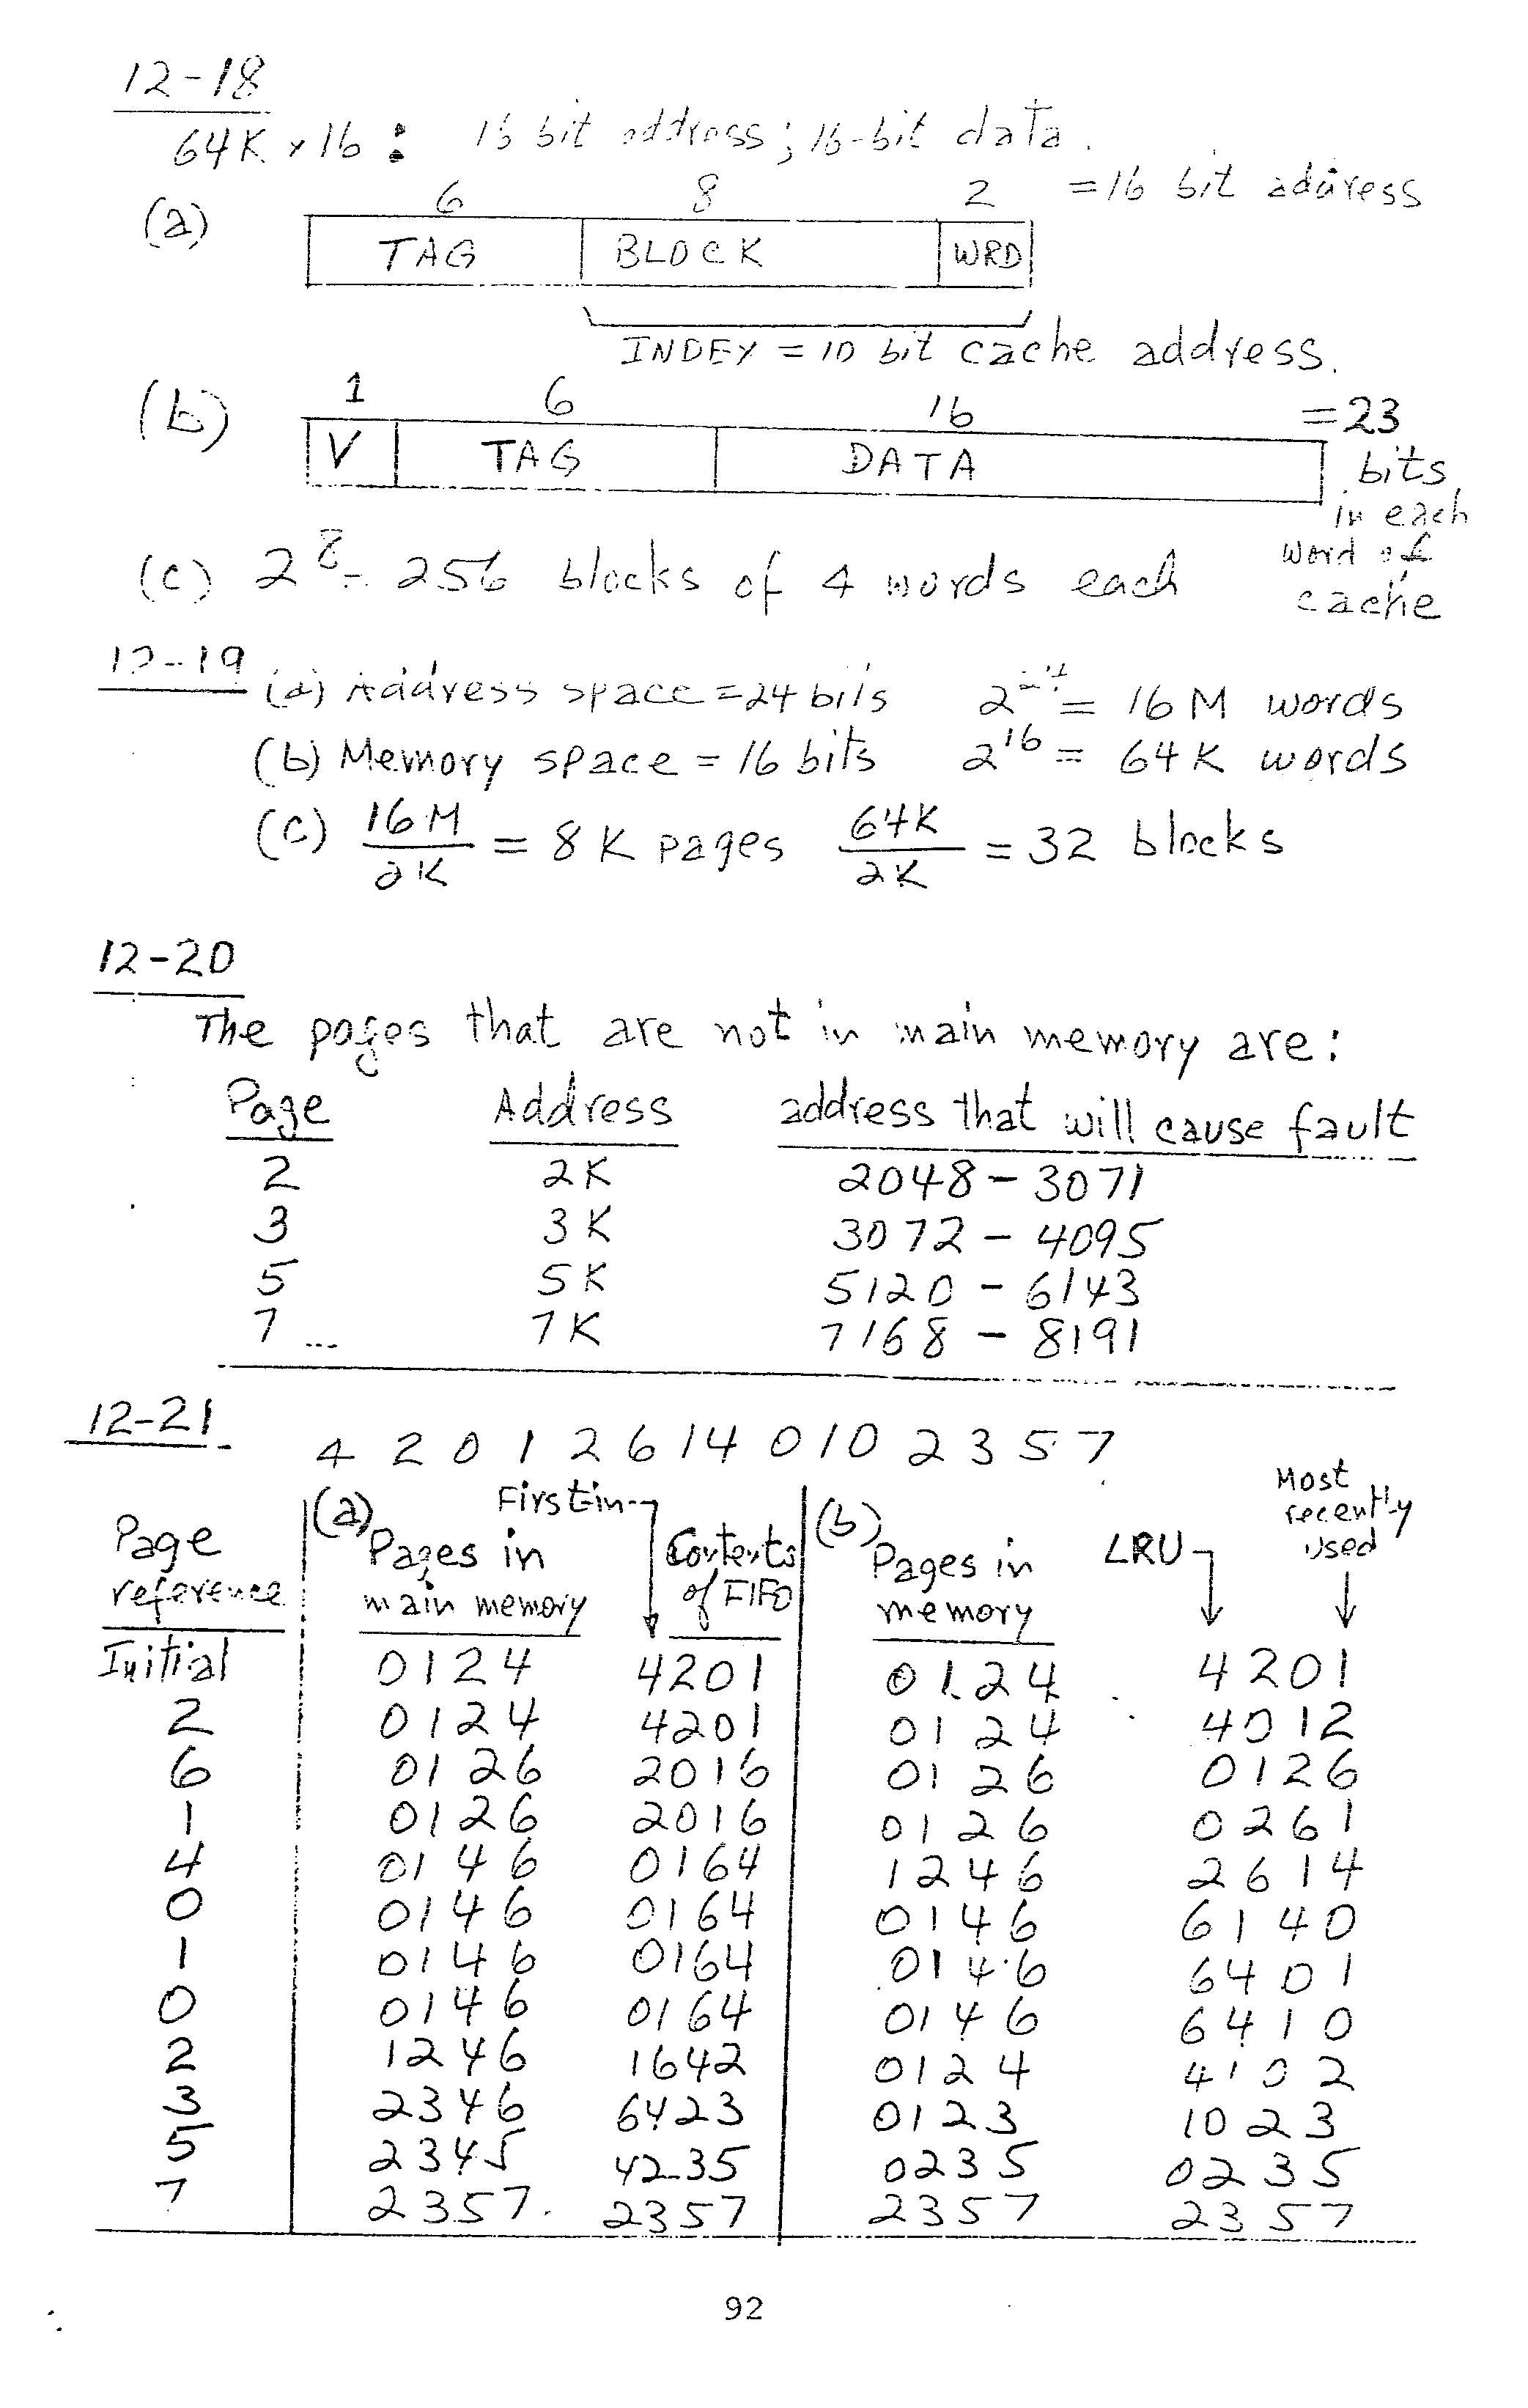 12-18
64K x 16 : 16 bit address; 16-bit data.
(a) 6 8 2 = 16 bit address
TAG BLOCK WRD
INDEX = 10 bit cache address.
(b) 1 6 16 = 23
V TAG DATA bits
in each
word of
cache
(c) 2^8 = 256 blocks of 4 words each
12-19 (a) Address space = 24 bits 2^24 = 16 M words
(b) Memory space = 16 bits 2^16 = 64 K words
(c) 16M/2K = 8 K pages 64K/2K = 32 blocks
12-20
The pages that are not in main memory are:
Page Address address that will cause fault
2 2K 2048 - 3071
3 3K 3072 - 4095
5 5K 5120 - 6143
7 7K 7168 - 8191
12-21 4 2 0 1 2 6 1 4 0 1 0 2 3 5 7
Page reference (a) Pages in main memory First in Contents of FIFO (b) Pages in memory LRU Most recently used
Initial 0124 4201 0124 4201
2 0124 4201 0124 4012
6 0126 2016 0126 0126
1 0126 2016 0126 0261
4 0146 0164 1246 2614
0 0146 0164 0146 6140
1 0146 0164 0146 6401
0 0146 0164 0146 6410
2 1246 1642 0124 4102
3 2346 6423 0123 1023
5 2345 4235 0235 0235
7 2357 2357 2357 2357
92